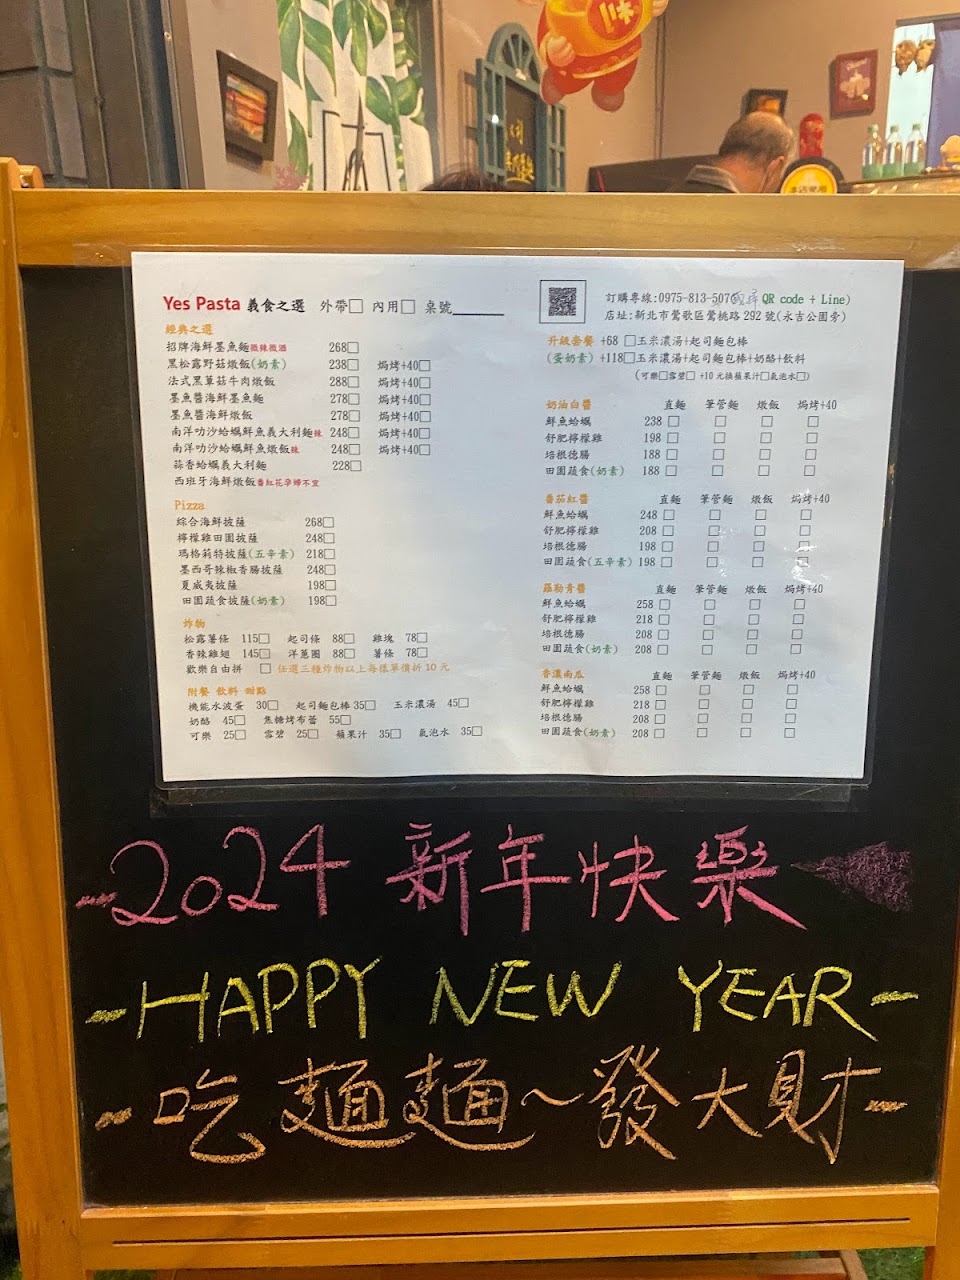 Yes Pasta 義食之選 外帶□ 內用□ 桌號
訂購專線:0975-813-507 QR code + Line)
店址:新北市鶯歌區鶯桃路 292 號(永吉公園旁)
經典之選
招牌海鮮墨魚麵微辣微酒 268□
黑松露野菇燉飯(奶素) 238□ 焗烤+40□
法式黑蕈菇牛肉燉飯 288□ 焗烤+40□
墨魚醬海鮮墨魚麵 278□ 焗烤+40□
墨魚醬海鮮燉飯 278□ 焗烤+40□
南洋叻沙蛤蠣鮮魚義大利麵辣 248□ 焗烤+40□
南洋叻沙蛤蠣鮮魚燉飯辣 248□ 焗烤+40□
蒜香蛤蠣義大利麵 228□
西班牙海鮮燉飯番紅花孕婦不宜
Pizza
綜合海鮮披薩 268□
檸檬雞田園披薩 248□
瑪格莉特披薩(五辛素) 218□
墨西哥辣椒香腸披薩 248□
夏威夷披薩 198□
田園蔬食披薩(奶素) 198□
炸物
松露薯條 115□ 起司條 88□ 雞塊 78□
香辣雞翅 145□ 洋蔥圈 88□ 薯條 78□
歡樂自由拼 □ 任選三種炸物以上每樣單價折 10 元
附餐 飲料 甜點
機能水波蛋 30□ 起司麵包棒 35□ 玉米濃湯 45□
奶酪 45□ 焦糖烤布蕾 55□
可樂 25□ 雪碧 25□ 蘋果汁 35□ 氣泡水 35□
升級套餐 +68 □玉米濃湯+起司麵包棒
(蛋奶素) +118□玉米濃湯+起司麵包棒+奶酪+飲料
(可樂□雪碧□ +10 元換蘋果汁□氣泡水□)
奶油白醬 直麵 筆管麵 燉飯 焗烤+40
鮮魚蛤蠣 238 □ □ □ □
舒肥檸檬雞 198 □ □ □ □
培根德腸 188 □ □ □ □
田園蔬食(奶素) 188 □ □ □ □
番茄紅醬 直麵 筆管麵 燉飯 焗烤+40
鮮魚蛤蠣 248 □ □ □ □
舒肥檸檬雞 208 □ □ □ □
培根德腸 198 □ □ □ □
田園蔬食(五辛素) 198 □ □ □ □
羅勒青醬 直麵 筆管麵 燉飯 焗烤+40
鮮魚蛤蠣 258 □ □ □ □
舒肥檸檬雞 218 □ □ □ □
培根德腸 208 □ □ □ □
田園蔬食(奶素) 208 □ □ □ □
香濃南瓜 直麵 筆管麵 燉飯 焗烤+40
鮮魚蛤蠣 258 □ □ □ □
舒肥檸檬雞 218 □ □ □ □
培根德腸 208 □ □ □ □
田園蔬食(奶素) 208 □ □ □ □
-2024 新年快樂
-HAPPY NEW YEAR-
-吃麵麵~發大財-